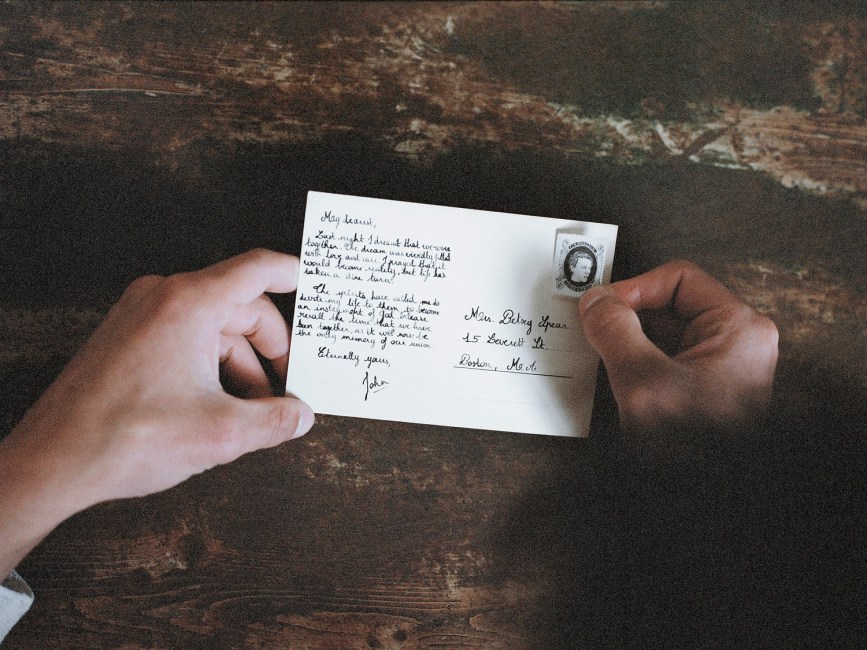 My dearest,
Last night I dreamt that we were
together. The dream was vividly felt
with love and care. I prayed that it
would become reality, but life has
taken a dire turn.
The spirits have called me to
devote my life to them, to become
an instrument of God. Please
recall the time that we have
been together, as it will now be
the only memory of our union.
Eternally yours,
John
Mrs. Betsy Spear
15 Everett St.
Boston, M.A.